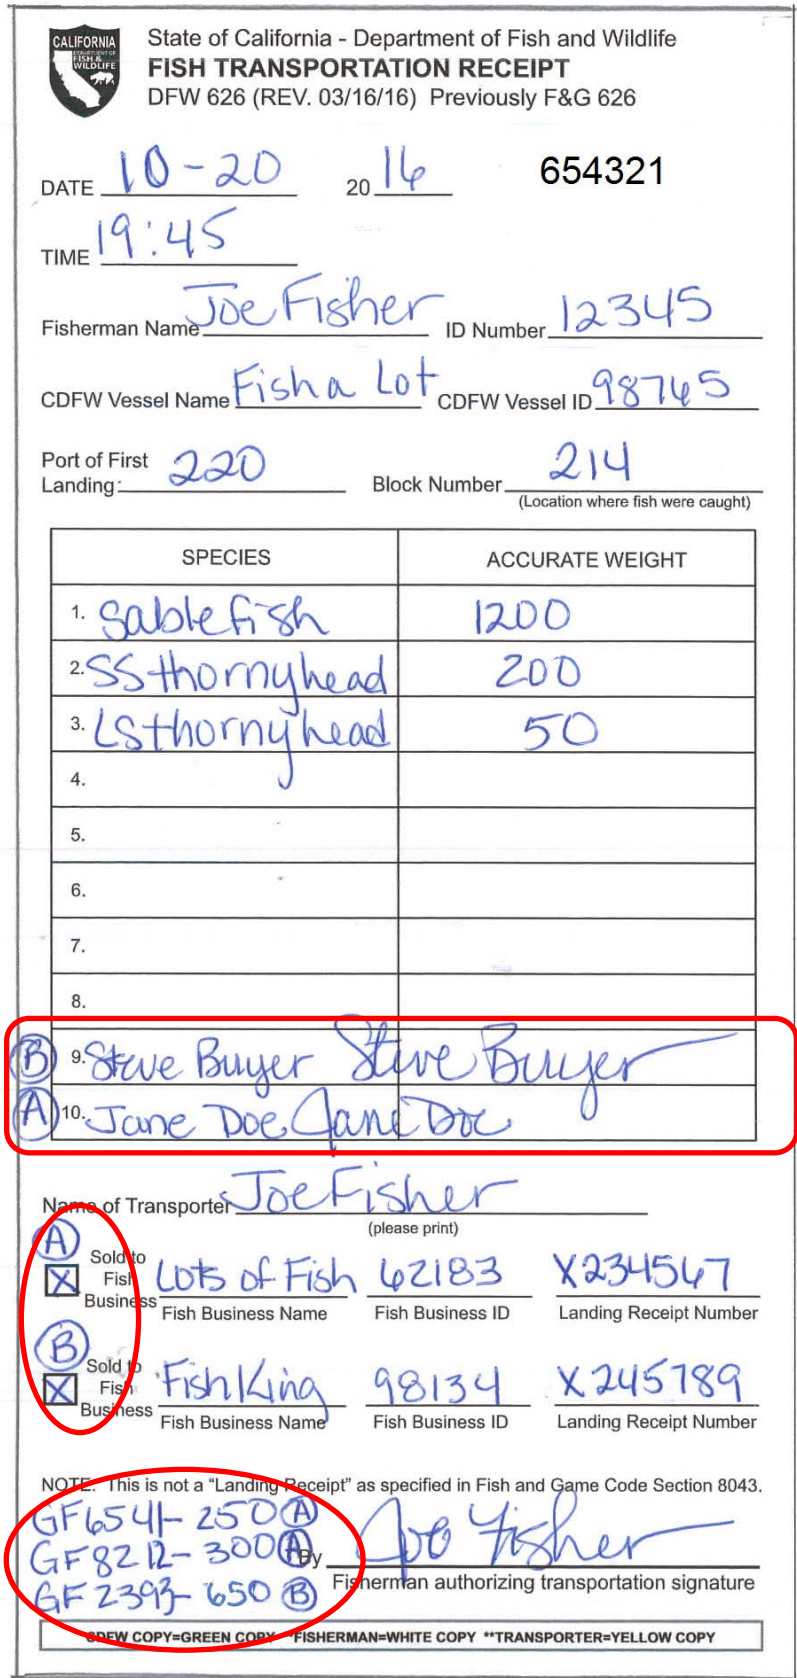 CALIFORNIA
DEPARTMENT OF
FISH &
WILDLIFE
State of California - Department of Fish and Wildlife
FISH TRANSPORTATION RECEIPT
DFW 626 (REV. 03/16/16) Previously F&G 626
DATE 10-20 2016 654321
TIME 19:45
Fisherman Name Joe Fisher ID Number 12345
CDFW Vessel Name Fish a Lot CDFW Vessel ID 98765
Port of First
Landing: 220 Block Number 214
(Location where fish were caught)
SPECIES ACCURATE WEIGHT
1. Sablefish 1200
2. SSthornyhead 200
3. LSthornyhead 50
4.
5.
6.
7.
8.
B 9. Steve Buyer Steve Buyer
A 10. Jane Doe Jane Doe
Name of Transporter Joe Fisher
(please print)
A
Sold to
Fish
Business
X Lots of Fish 62183 X234567
Fish Business Name Fish Business ID Landing Receipt Number
B
Sold to
Fish
Business
X Fish King 98134 X245789
Fish Business Name Fish Business ID Landing Receipt Number
NOTE: This is not a "Landing Receipt" as specified in Fish and Game Code Section 8043.
GF6541- 250 A
GF8212- 300 A By Joe Fisher
GF2393- 650 B Fisherman authorizing transportation signature
CDFW COPY=GREEN COPY *FISHERMAN=WHITE COPY **TRANSPORTER=YELLOW COPY